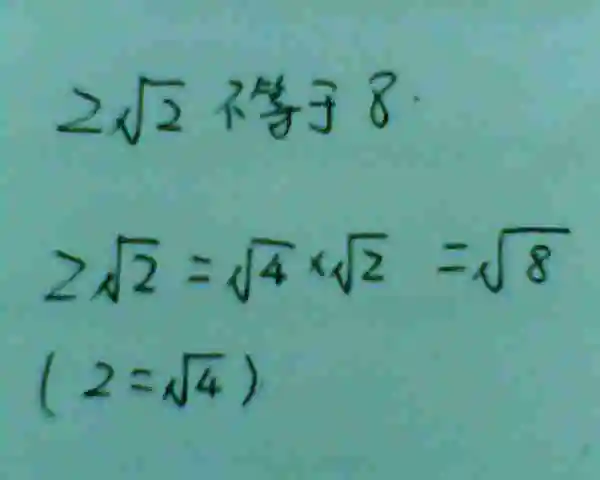 2√2 不等于 8.
2√2 = √4 × √2 = √8
(2 = √4)